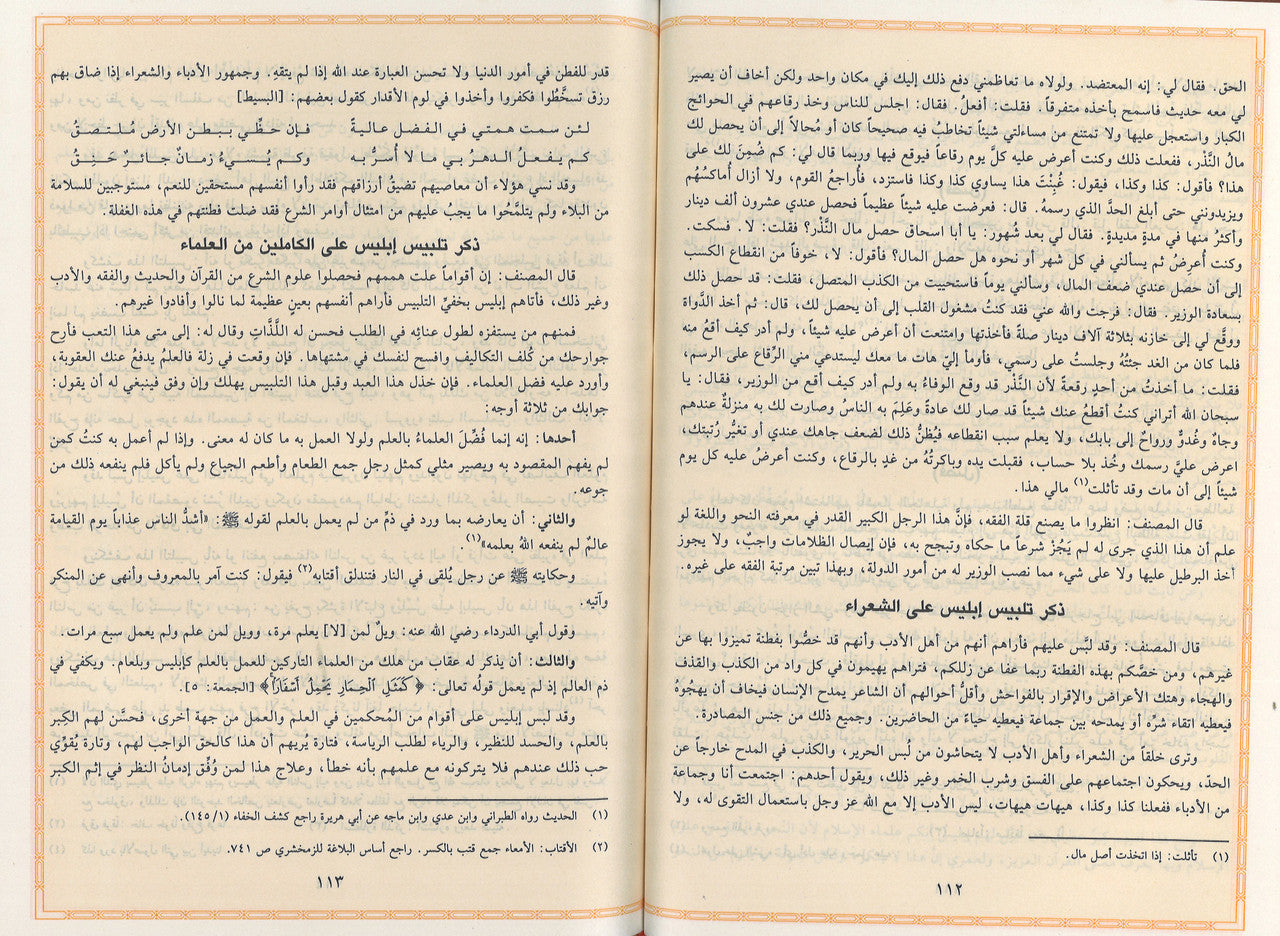 الحق. فقال لي: إنه المعتضد. ولولاه ما تعاظمني دفع ذلك إليك في مكان واحد ولكن أخاف أن يصير
لي معه حديث فاسمح بأخذه متفرقاً. فقلت: أفعلُ. فقال: اجلس للناس وخذ رقاعهم في الحوائج
الكبار واستعجل عليها ولا تمتنع من مساءلتي شيئاً تخاطبُ فيه صحيحاً كان أو مُحالاً إلى أن يحصل لك
مالُ النَّذْر، ففعلت ذلك وكنت أعرض عليه كلَّ يوم رقاعاً فيوقع فيها وربما قال لي: كم ضُمِنَ لك على
هذا؟ فأقول: كذا وكذا، فيقول: غُبِنْتَ هذا يساوي كذا وكذا فاستزد، فأُراجعُ القوم، ولا أزال أُماكسُهُم
ويزيدونني حتى أبلغ الحدَّ الذي رسمهُ. قال: فعرضت عليه شيئاً عظيماً فحصل عندي عشرون ألف دينار
وأكثرُ منها في مدةٍ مديدةٍ. فقال لي بعد شُهور: يا أبا اسحاق حصل مال النَّذْر؟ فقلت: لا. فسكت.
وكنت أُعرِضُ ثم يسألني في كلِّ شهر أو نحوه هل حصل المال؟ فأقول: لا، خوفاً من انقطاع الكسب
إلى أن حصل عندي ضعف المال، وسألني يوماً فاستحييت من الكذب المتصل، فقلت: قد حصل ذلك
بسعادة الوزير. فقال: فرجت والله عني فقد كنتُ مشغول القلب إلى أن يحصل لك، قال: ثم أخذ الدَّواة
ووقَّع لي إلى خازنه بثلاثة آلاف دينار صلةً فأخذتها وامتنعت أن أعرض عليه شيئاً، ولم أدر كيف أقعُ منه
فلما كان من الغد جئتُهُ وجلستُ على رسمي، فأومأ إليّ هات ما معك ليستدعي مني الرِّقاع على الرسم،
فقلت: ما أخذتُ من أحدٍ رقعةً لأن النَّذْر قد وقع الوفاءُ به ولم أدر كيف أقع من الوزير، فقال: يا
سبحان الله أتراني كنتُ أقطعُ عنك شيئاً قد صار لك عادةً وعَلِمَ به الناسُ وصارت لك به منزلةٌ عندهم
وجاهٌ وغُدوٌّ ورواحٌ إلى بابك، ولا يعلم سبب انقطاعه فيُظنُّ ذلك لضعف جاهك عندي أو تغيُّر رُتبتك،
اعرض عليَّ رسمك وخُذ بلا حساب، فقبلت يده وباكرتُهُ من غدٍ بالرقاع، وكنت أعرضُ عليه كل يوم
شيئاً إلى أن مات وقد تأثلت(١) مالي هذا.
قال المصنف: انظروا ما يصنع قلة الفقه، فإنَّ هذا الرجل الكبير القدر في معرفته النحو واللغة لو
علم أن هذا الذي جرى له لم يَجُزْ شرعاً ما حكاه وتبجح به، فإن إيصال الظلامات واجبٌ، ولا يجوز
أخذ البرطيل عليها ولا على شيء مما نصب الوزير له من أمور الدولة، وبهذا تبين مرتبة الفقه على غيره.
ذكر تلبيس إبليس على الشعراء
قال المصنف: وقد لبَّس عليهم فأراهم أنهم من أهل الأدب وأنهم قد خصُّوا بفطنة تميزوا بها عن
غيرهم، ومن خصَّكم بهذه الفطنة ربما عفا عن زللكم، فتراهم يهيمون في كل واد من الكذب والقذف
والهجاء وهتك الأعراض والإقرار بالفواحش وأقلُّ أحوالهم أن الشاعر يمدح الإنسان فيخاف أن يهجُوهُ
فيعطيه اتقاء شرِّه أو يمدحه بين جماعة فيعطيه حياءً من الحاضرين. وجميع ذلك من جنس المصادرة.
وترى خلقاً من الشعراء وأهل الأدب لا يتحاشون من لُبس الحرير، والكذب في المدح خارجاً عن
الحدّ، ويحكون اجتماعهم على الفسق وشرب الخمر وغير ذلك، ويقول أحدهم: اجتمعت أنا وجماعة
من الأدباء ففعلنا كذا وكذا، هيهات هيهات، ليس الأدب إلا مع الله عز وجل باستعمال التقوى له، ولا
(١) تأثلت: إذا اتخذت أصل مال.
١١٢
قدر للفطن في أمور الدنيا ولا تحسن العبارة عند الله إذا لم يتقهِ. وجمهور الأدباء والشعراء إذا ضاق بهم
رزق تسخَّطُوا فكفروا وأخذوا في لوم الأقدار كقول بعضهم: [البسيط]
لئن سمت همتي في الفضل عاليةً فإن حظِّي ببطن الأرض مُلتصقُ
كم يفعلُ الدهرُ بي ما لا أُسرُّ به وكم يُسيءُ زمانٌ جائرٌ حَنِقُ
وقد نسي هؤلاء أن معاصيهم تضيقُ أرزاقهم فقد رأوا أنفسهم مستحقين للنعم، مستوجبين للسلامة
من البلاء ولم يتلمَّحُوا ما يجبُ عليهم من امتثال أوامر الشرع فقد ضلت فطنتهم في هذه الغفلة.
ذكر تلبيس إبليس على الكاملين من العلماء
قال المصنف: إن أقواماً علت هممهم فحصلوا علوم الشرع من القرآن والحديث والفقه والأدب
وغير ذلك، فأتاهم إبليس بخفيِّ التلبيس فأراهم أنفسهم بعينٍ عظيمة لما نالوا وأفادوا غيرهم.
فمنهم من يستفزه لطول عنائِه في الطلب فحسن له اللَّذَّاتِ وقال له: إلى متى هذا التعب فأرح
جوارحك من كُلف التكاليف وافسح لنفسك في مشتهاها. فإن وقعت في زلة فالعلمُ يدفعُ عنك العقوبة،
وأورد عليه فضل العلماء. فإن خذل هذا العبد وقبل هذا التلبيس يهلك وإن وفق فينبغي له أن يقول:
جوابك من ثلاثة أوجه:
أحدها: إنه إنما فُضِّلَ العلماءُ بالعلم ولولا العمل به ما كان له معنى. وإذا لم أعمل به كنتُ كمن
لم يفهم المقصود به ويصير مثلي كمثل رجلٍ جمع الطعام وأطعم الجياع ولم يأكل فلم ينفعه ذلك من
جوعه.
والثاني: أن يعارضه بما ورد في ذمِّ من لم يعمل بالعلم لقوله ﷺ: «أشدُّ الناس عذاباً يوم القيامة
عالمٌ لم ينفعه اللهُ بعلمه»(١)
وحكايته ﷺ عن رجل يُلقى في النار فتندلق أقتابه(٢) فيقول: كنت آمر بالمعروف وأنهى عن المنكر
وآتيه.
وقول أبي الدرداء رضي الله عنه: ويلٌ لمن [لا] يعلم مرة، وويل لمن علم ولم يعمل سبع مرات.
والثالث: أن يذكر له عقاب من هلك من العلماء التاركين للعمل بالعلم كإبليس وبلعام. ويكفي في
ذم العالم إذ لم يعمل قولُه تعالى: ﴿كَمَثَلِ الْحِمَارِ يَحْمِلُ أَسْفَارًا﴾ [الجمعة: ٥].
وقد لبس إبليس على أقوام من المُحكمين في العلم والعمل من جهة أخرى، فحسَّن لهم الكِبر
بالعلم، والحسد للنظير، والرياء لطلب الرياسة، فتارة يُريهم أن هذا كالحق الواجب لهم، وتارة يُقوِّي
حب ذلك عندهم فلا يتركونه مع علمهم بأنه خطأ، وعلاج هذا لمن وُفِّق إدمانُ النظر في إثم الكبر
(١) الحديث رواه الطبراني وابن عدي وابن ماجه عن أبي هريرة راجع كشف الخفاء (١/١٤٥).
(٢) الأقتاب: الأمعاء جمع قتب بالكسر. راجع أساس البلاغة للزمخشري ص ٧٤١.
١١٣